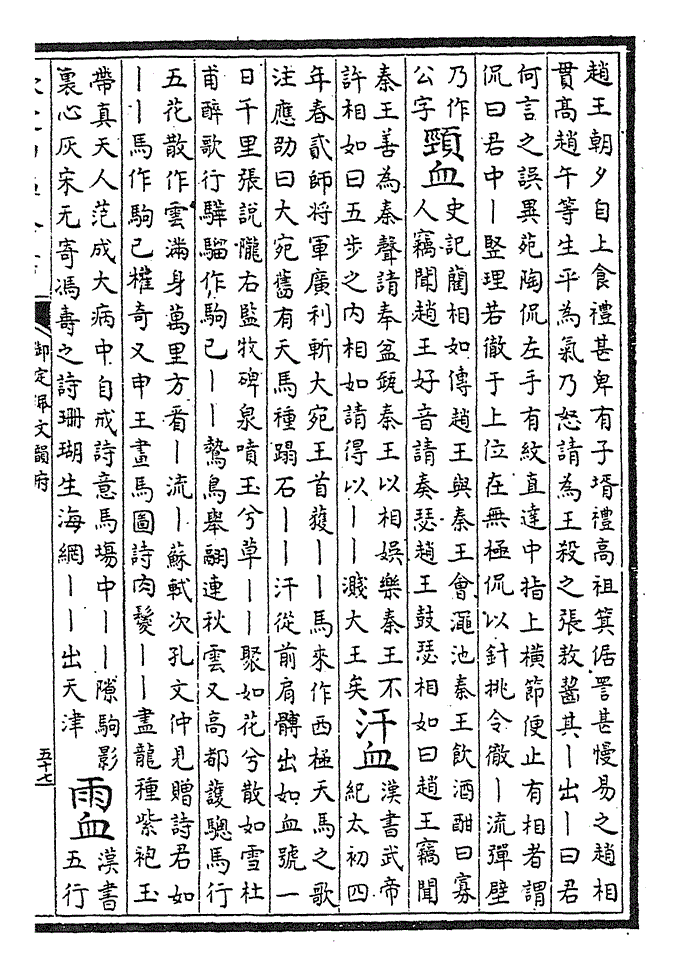 趙王朝夕自上食禮甚卑有子壻禮高祖箕倨詈甚慢易之趙相
貫高趙午等生平為氣乃怒請為王殺之張敖齧其丨出丨曰君
何言之誤異苑陶侃左手有紋直達中指上橫節便止有相者謂
侃曰君中丨竪理若徹于上位在無極侃以針挑令徹丨流彈壁
乃作
公字
頸血
史記藺相如傳趙王與秦王會澠池秦王飲酒酣曰寡
人竊聞趙王好音請奏瑟趙王鼓瑟相如曰趙王竊聞
秦王善為秦聲請奉盆缻秦王以相娛樂秦王不
許相如曰五步之内相如請得以丨丨濺大王矣
汗血
漢書武帝
紀太初四
年春貳師将軍廣利斬大宛王首獲丨丨馬來作西極天馬之歌
注應劭曰大宛舊有天馬種蹋石丨丨汗從前肩髆出如血號一
日千里張說隴右監牧碑泉噴玉兮草丨丨聚如花兮散如雪杜
甫醉歌行驊騮作駒已丨丨鷙鳥舉翮連秋雲又高都護驄馬行
五花散作雲滿身萬里方看丨流丨蘇軾次孔文仲見贈詩君如
丨丨馬作駒已權奇又申王畫馬圖詩肉鬉丨丨盡龍種紫袍玉
帶真天人范成大病中自戒詩意馬場中丨丨隙駒影
裏心灰宋无寄馮壽之詩珊瑚生海網丨丨出天津
雨血
漢書
五行
御定佩文韻府
五十七